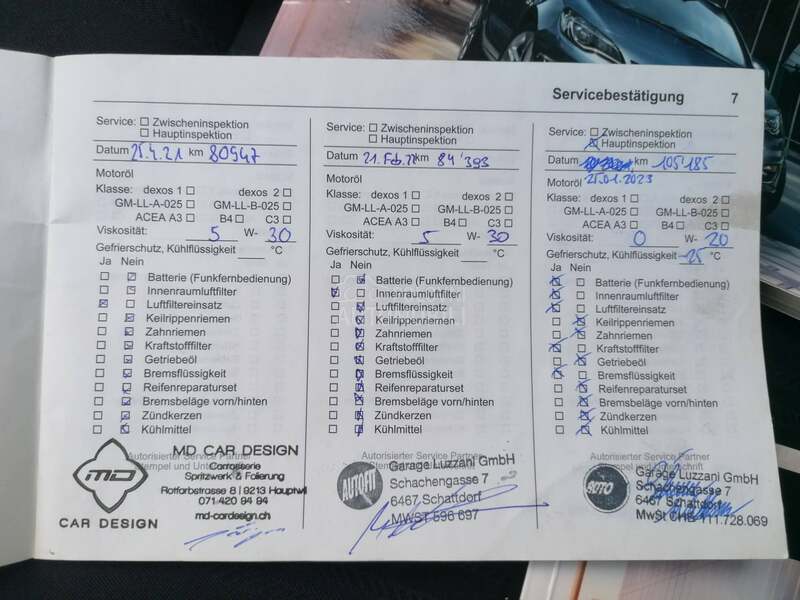 Servicebestätigung 7
Service: Zwischeninspektion
Hauptinspektion
Datum 25.2.21 km 80947
Motoröl
Klasse: dexos 1 dexos 2
GM-LL-A-025 GM-LL-B-025
ACEA A3 B4 C3
Viskosität: 5 W- 30
Gefrierschutz, Kühlflüssigkeit °C
Ja Nein
Batterie (Funkfernbedienung)
Innenraumluftfilter
Luftfiltereinsatz
Keilrippenriemen
Zahnriemen
Kraftstofffilter
Getriebeöl
Bremsflüssigkeit
Reifenreparaturset
Bremsbeläge vorn/hinten
Zündkerzen
Kühlmittel
Autorisierter Service Partner
Stempel und
MD CAR DESIGN
Carrosserie
Spritzwerk & Folierung
Rotfarbstrasse 8 | 9213 Hauptwil
071 420 94 94
md-cardesign.ch
MD
CAR DESIGN
Service: Zwischeninspektion
Hauptinspektion
Datum 21. Feb. 22 km 84'393
Motoröl
Klasse: dexos 1 dexos 2
GM-LL-A-025 GM-LL-B-025
ACEA A3 B4 C3
Viskosität: 5 W- 30
Gefrierschutz, Kühlflüssigkeit °C
Ja Nein
Batterie (Funkfernbedienung)
Innenraumluftfilter
Luftfiltereinsatz
Keilrippenriemen
Zahnriemen
Kraftstofffilter
Getriebeöl
Bremsflüssigkeit
Reifenreparaturset
Bremsbeläge vorn/hinten
Zündkerzen
Kühlmittel
Autorisierter Service Partner
AUTOFIT
Garage Luzzani GmbH
Schachengasse 7
6467 Schattdorf
MWST 596 697
Service: Zwischeninspektion
Hauptinspektion
Datum km 105'185
Motoröl 25.01.2023
Klasse: dexos 1 dexos 2
GM-LL-A-025 GM-LL-B-025
ACEA A3 B4 C3
Viskosität: 0 W- 20
Gefrierschutz, Kühlflüssigkeit -25 °C
Ja Nein
Batterie (Funkfernbedienung)
Innenraumluftfilter
Luftfiltereinsatz
Keilrippenriemen
Zahnriemen
Kraftstofffilter
Getriebeöl
Bremsflüssigkeit
Reifenreparaturset
Bremsbeläge vorn/hinten
Zündkerzen
Kühlmittel
Autorisierter Service Partner
Garage Luzzani GmbH
Schachengasse 7
6467 Schattdorf
MwSt CHE 111.728.069